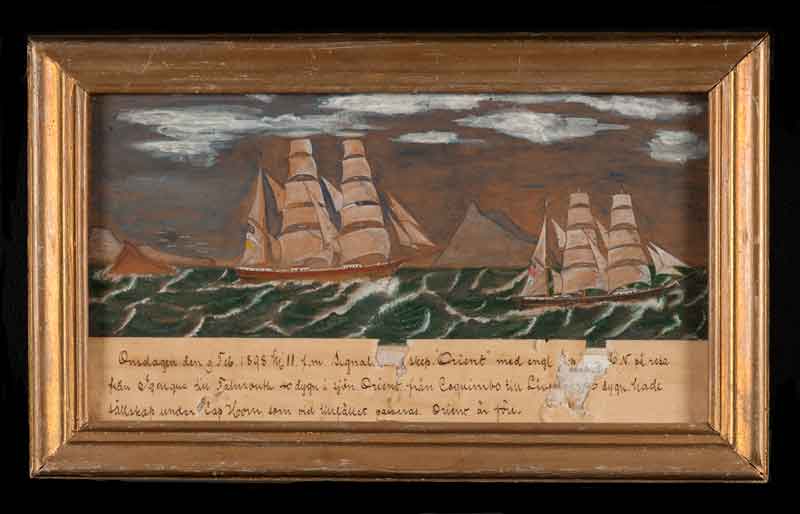 Onsdagen den 9 Feb. 1898 kl 11. f.m. Signal skep. "Orient" med engl N. på resa
från Iquique till Falmouth 40 dygn i sjön. Orient från Coquimbo till dygn hade
sällskap under Cap Horn, som vid tillfället passeras. Orient är före.